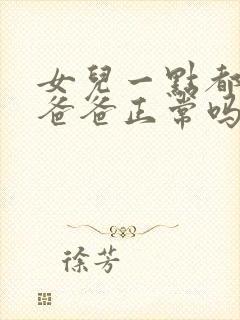 女兒一點都
爸爸正常吗
徐芳